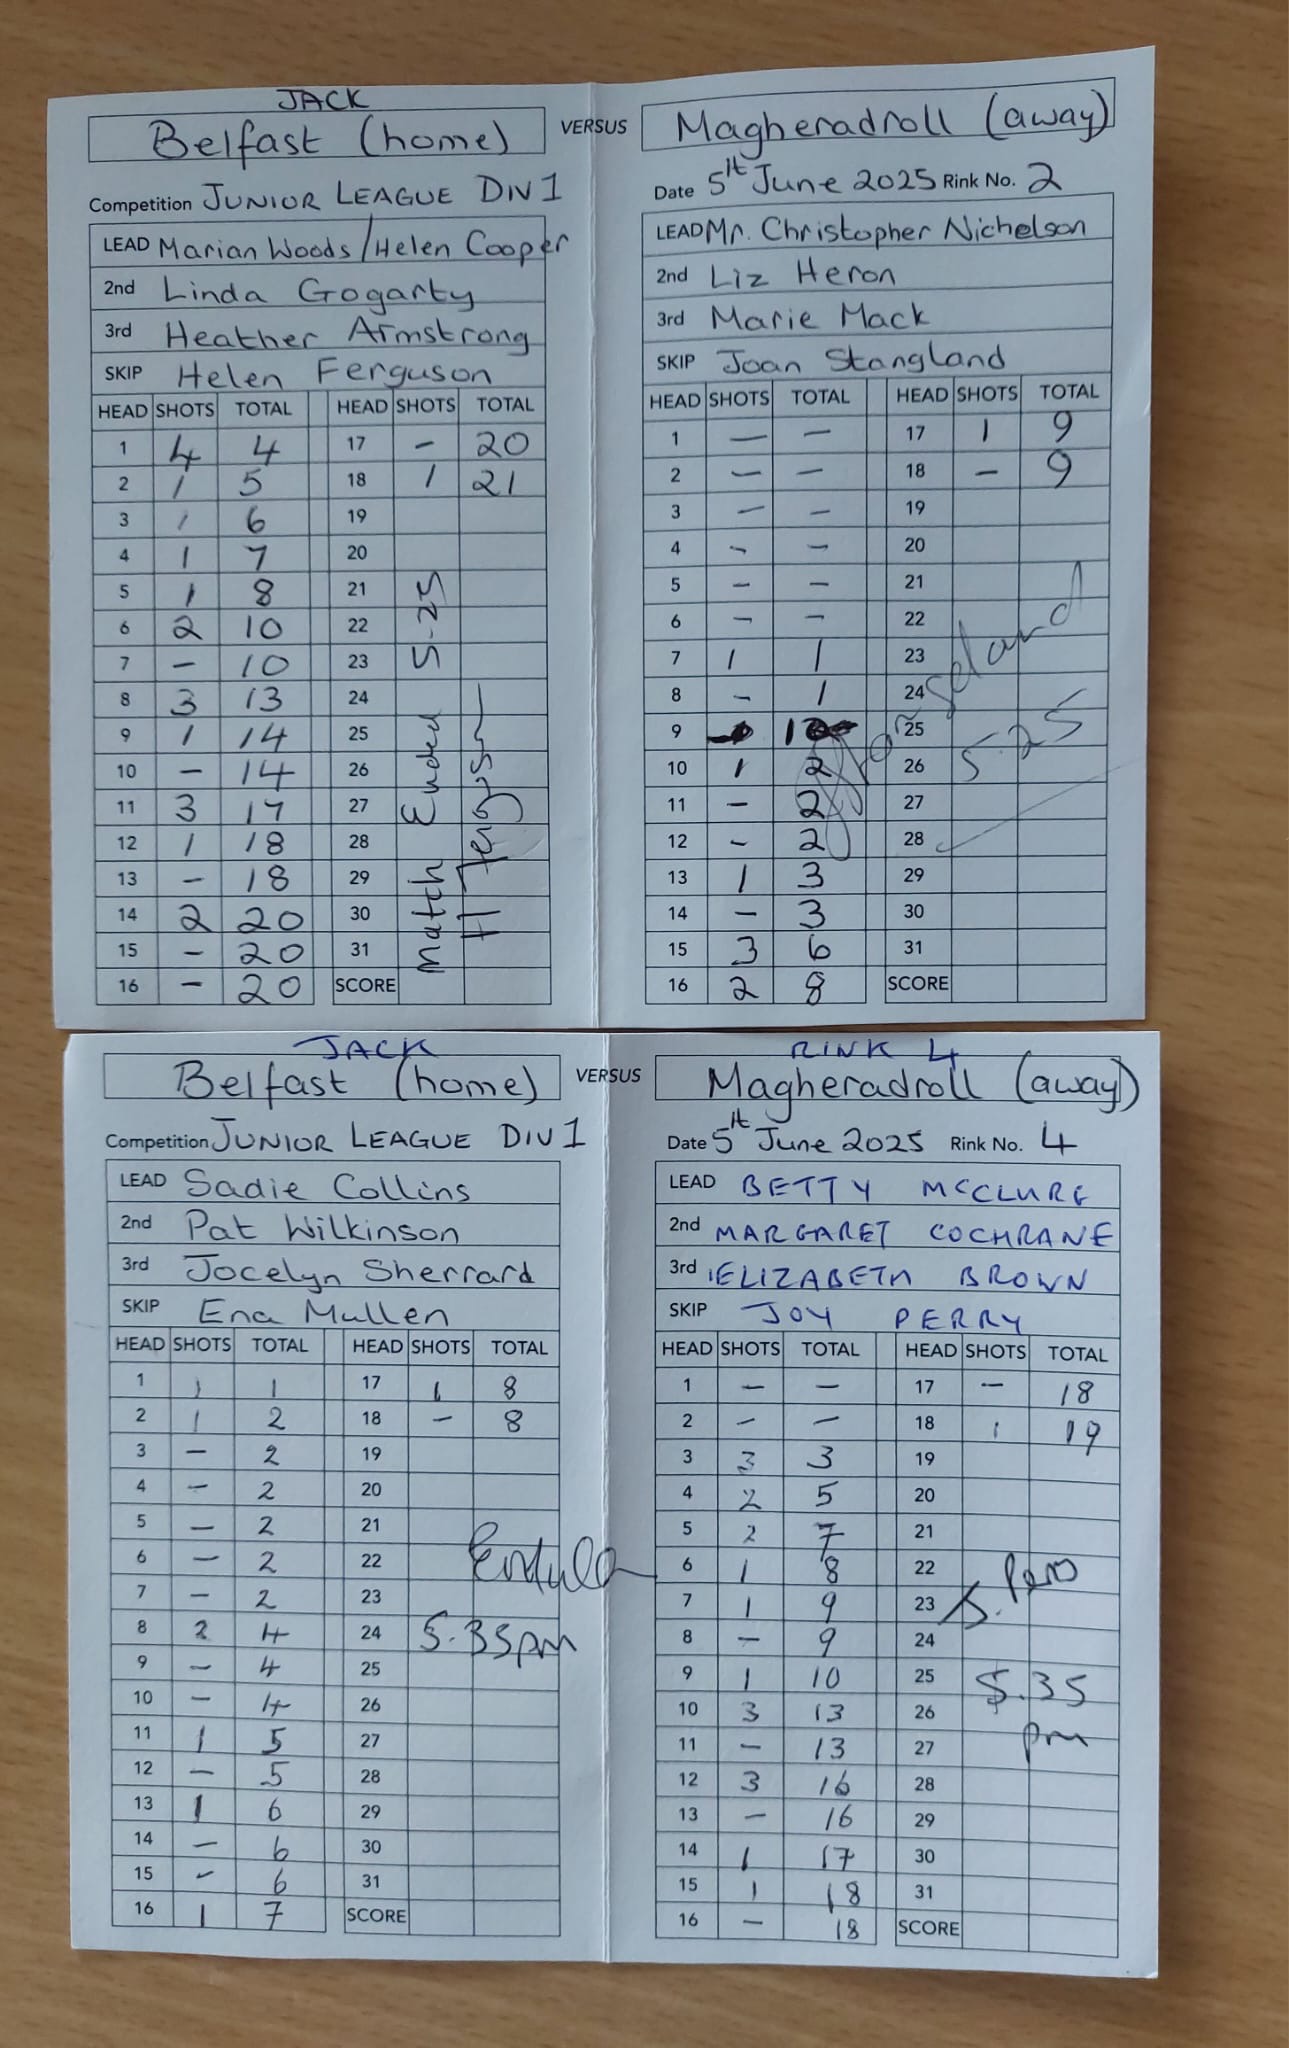 JACK
Belfast (home) VERSUS Magheradroll (away)
Competition JUNIOR LEAGUE DIV 1
Date 5th June 2025 Rink No. 2
LEAD Marian Woods/Helen Cooper
2nd Linda Gogarty
3rd Heather Armstrong
SKIP Helen Ferguson
HEAD SHOTS TOTAL HEAD SHOTS TOTAL
1 4 4 17 - 20
2 1 5 18 1 21
3 1 6 19
4 1 7 20
5 1 8 21
6 2 10 22
7 - 10 23
8 3 13 24
9 1 14 25
10 - 14 26
11 3 17 27
12 1 18 28
13 - 18 29
14 2 20 30
15 - 20 31
16 - 20 SCORE
Match Ended 5-25
H Ferguson
LEAD Mr. Christopher Nichelson
2nd Liz Heron
3rd Marie Mack
SKIP Joan Stangland
HEAD SHOTS TOTAL HEAD SHOTS TOTAL
1 - - 17 1 9
2 - - 18 - 9
3 - - 19
4 - - 20
5 - - 21
6 - - 22
7 1 1 23
8 - 1 24
9 1 25
10 1 2 26
11 - 2 27
12 - 2 28
13 1 3 29
14 - 3 30
15 3 6 31
16 2 8 SCORE
5.25
JACK RINK 4
Belfast (home) VERSUS Magheradroll (away)
Competition JUNIOR LEAGUE DIV 1
Date 5th June 2025 Rink No. 4
LEAD Sadie Collins
2nd Pat Wilkinson
3rd Jocelyn Sherrard
SKIP Ena Mullen
HEAD SHOTS TOTAL HEAD SHOTS TOTAL
1 1 1 17 1 8
2 1 2 18 - 8
3 - 2 19
4 - 2 20
5 - 2 21
6 - 2 22
7 - 2 23
8 2 4 24
9 - 4 25
10 - 4 26
11 1 5 27
12 - 5 28
13 1 6 29
14 - 6 30
15 - 6 31
16 1 7 SCORE
5.35pm
LEAD BETTY McCLURE
2nd MARGARET COCHRANE
3rd ELIZABETH BROWN
SKIP JOY PERRY
HEAD SHOTS TOTAL HEAD SHOTS TOTAL
1 - - 17 - 18
2 - - 18 1 19
3 3 3 19
4 2 5 20
5 2 7 21
6 1 8 22
7 1 9 23
8 - 9 24
9 1 10 25
10 3 13 26
11 - 13 27
12 3 16 28
13 - 16 29
14 1 17 30
15 1 18 31
16 - 18 SCORE
5.35
pm